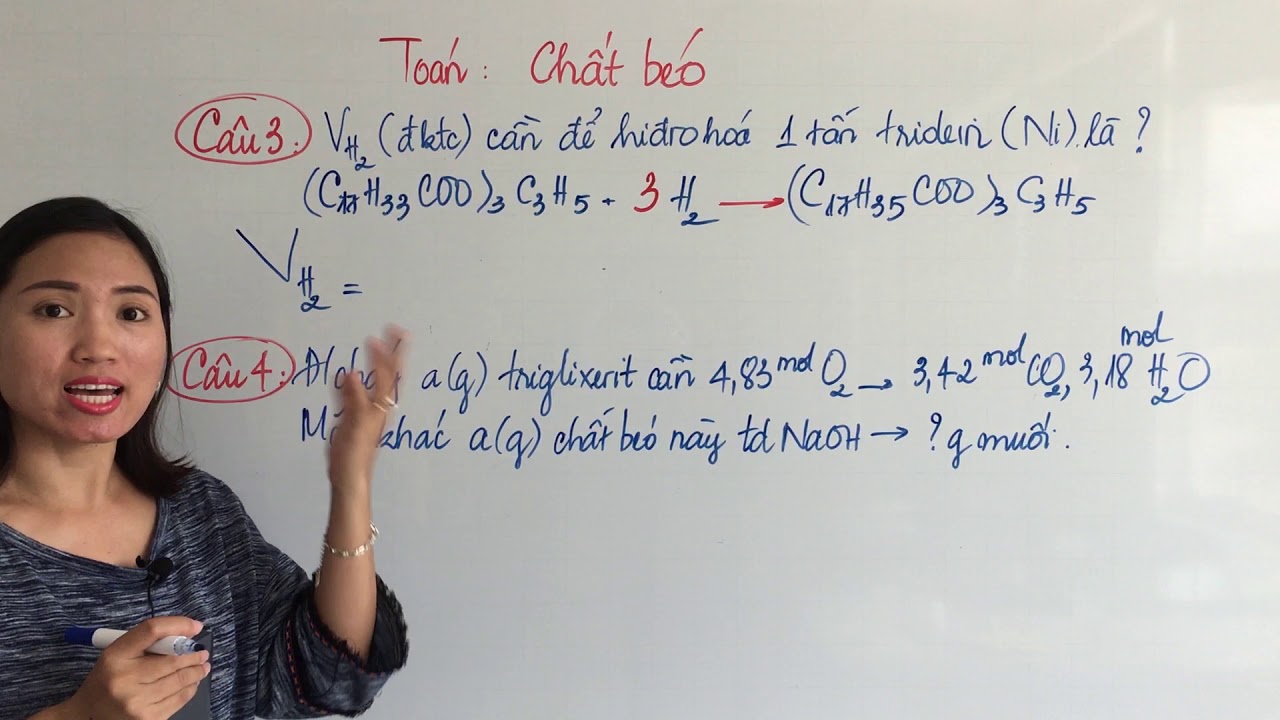 Toán : Chất béo
Câu 3. V H₂ (đktc) cần để hiđro hoá 1 tấn triolein (Ni) là ?
(C₁₇H₃₃COO)₃C₃H₅ + 3 H₂ → (C₁₇H₃₅COO)₃C₃H₅
V H₂ =
Câu 4. a(g) triglixerit cần 4,83 mol O₂ → 3,42 mol CO₂, 3,18 mol H₂O
khác a(g) chất béo này td NaOH → ? g muối.